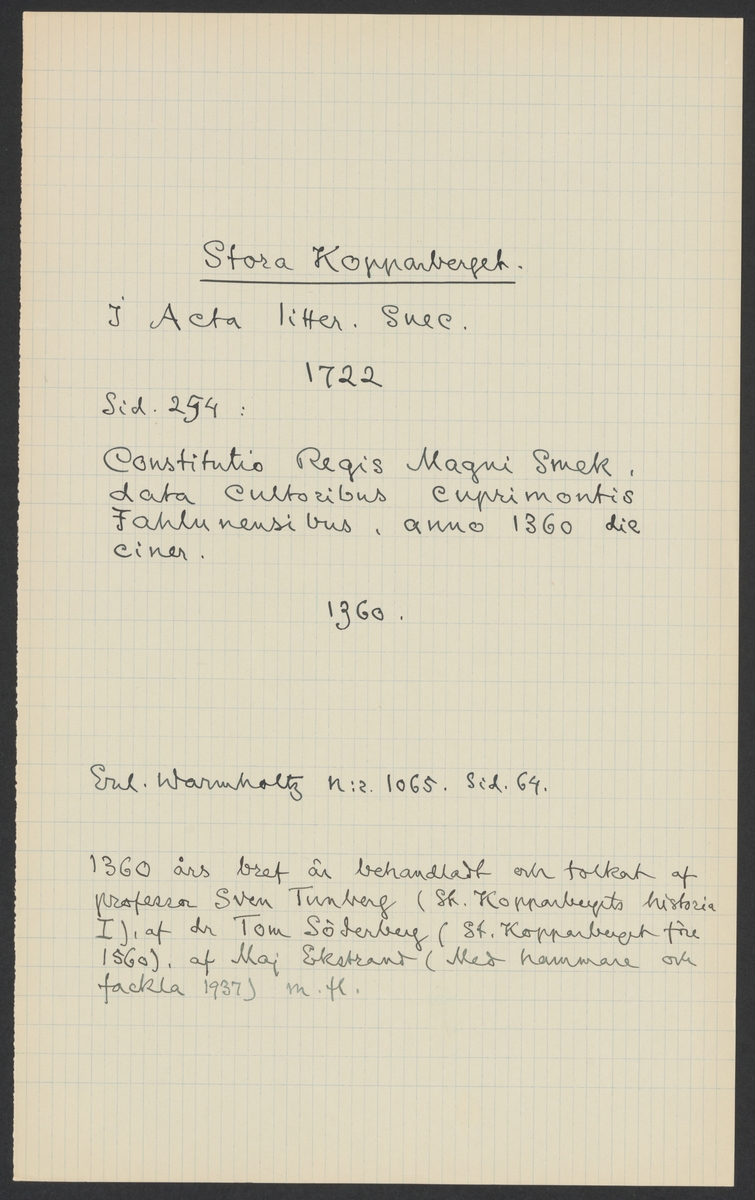 Stora Kopparberget.
I Acta litter. Suec.
1722
Sid. 254 :
Constitutio Regis Magni Smek,
data cultoribus cuprimontis
Fahlunensibus, anno 1360 die
ciner.
1360.
Enl. Warmholtz N:r. 1065. Sid. 64.
1360 års bref är behandladt och tolkat af
professor Sven Tunberg (St. Kopparbergets historia
I), af dr Tom Söderberg (St. Kopparberget före
1560), af Maj Ekstrand (Med hammare och
fackla 1937) m. fl.